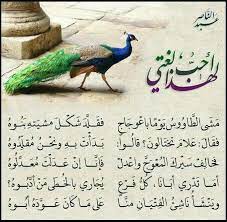 أحب لغتي
لهذا
مَشَى الطَّاووسُ يَوْمًا بِاعْوِجَاجٍ فَقَلَّدَ شَكْلَ مِشْيَتِهِ بَنُوهُ
فَقَالَ: عَلَامَ تَخْتَالُونَ؟ قَالُوا: بَدَأْتَ بِهِ وَنَحْنُ مُقَلِّدُوهُ
فَخَالِفْ سَيْرَكَ المُعْوَجَّ وَاعْدِلْ فَإِنَّا إِنْ عَدَلْتَ مُعَدِّلُوهُ
أَمَا تَدْرِي أَبَانَا، كُلُّ فَرْعٍ يُجَارِي بِالخُطَى مَنْ أَدَّبُوهُ؟
وَيَنْشَأُ نَاشِئُ الفِتْيَانِ مِنَّا عَلَى مَا كَانَ عَوَّدَهُ أَبُوهُ